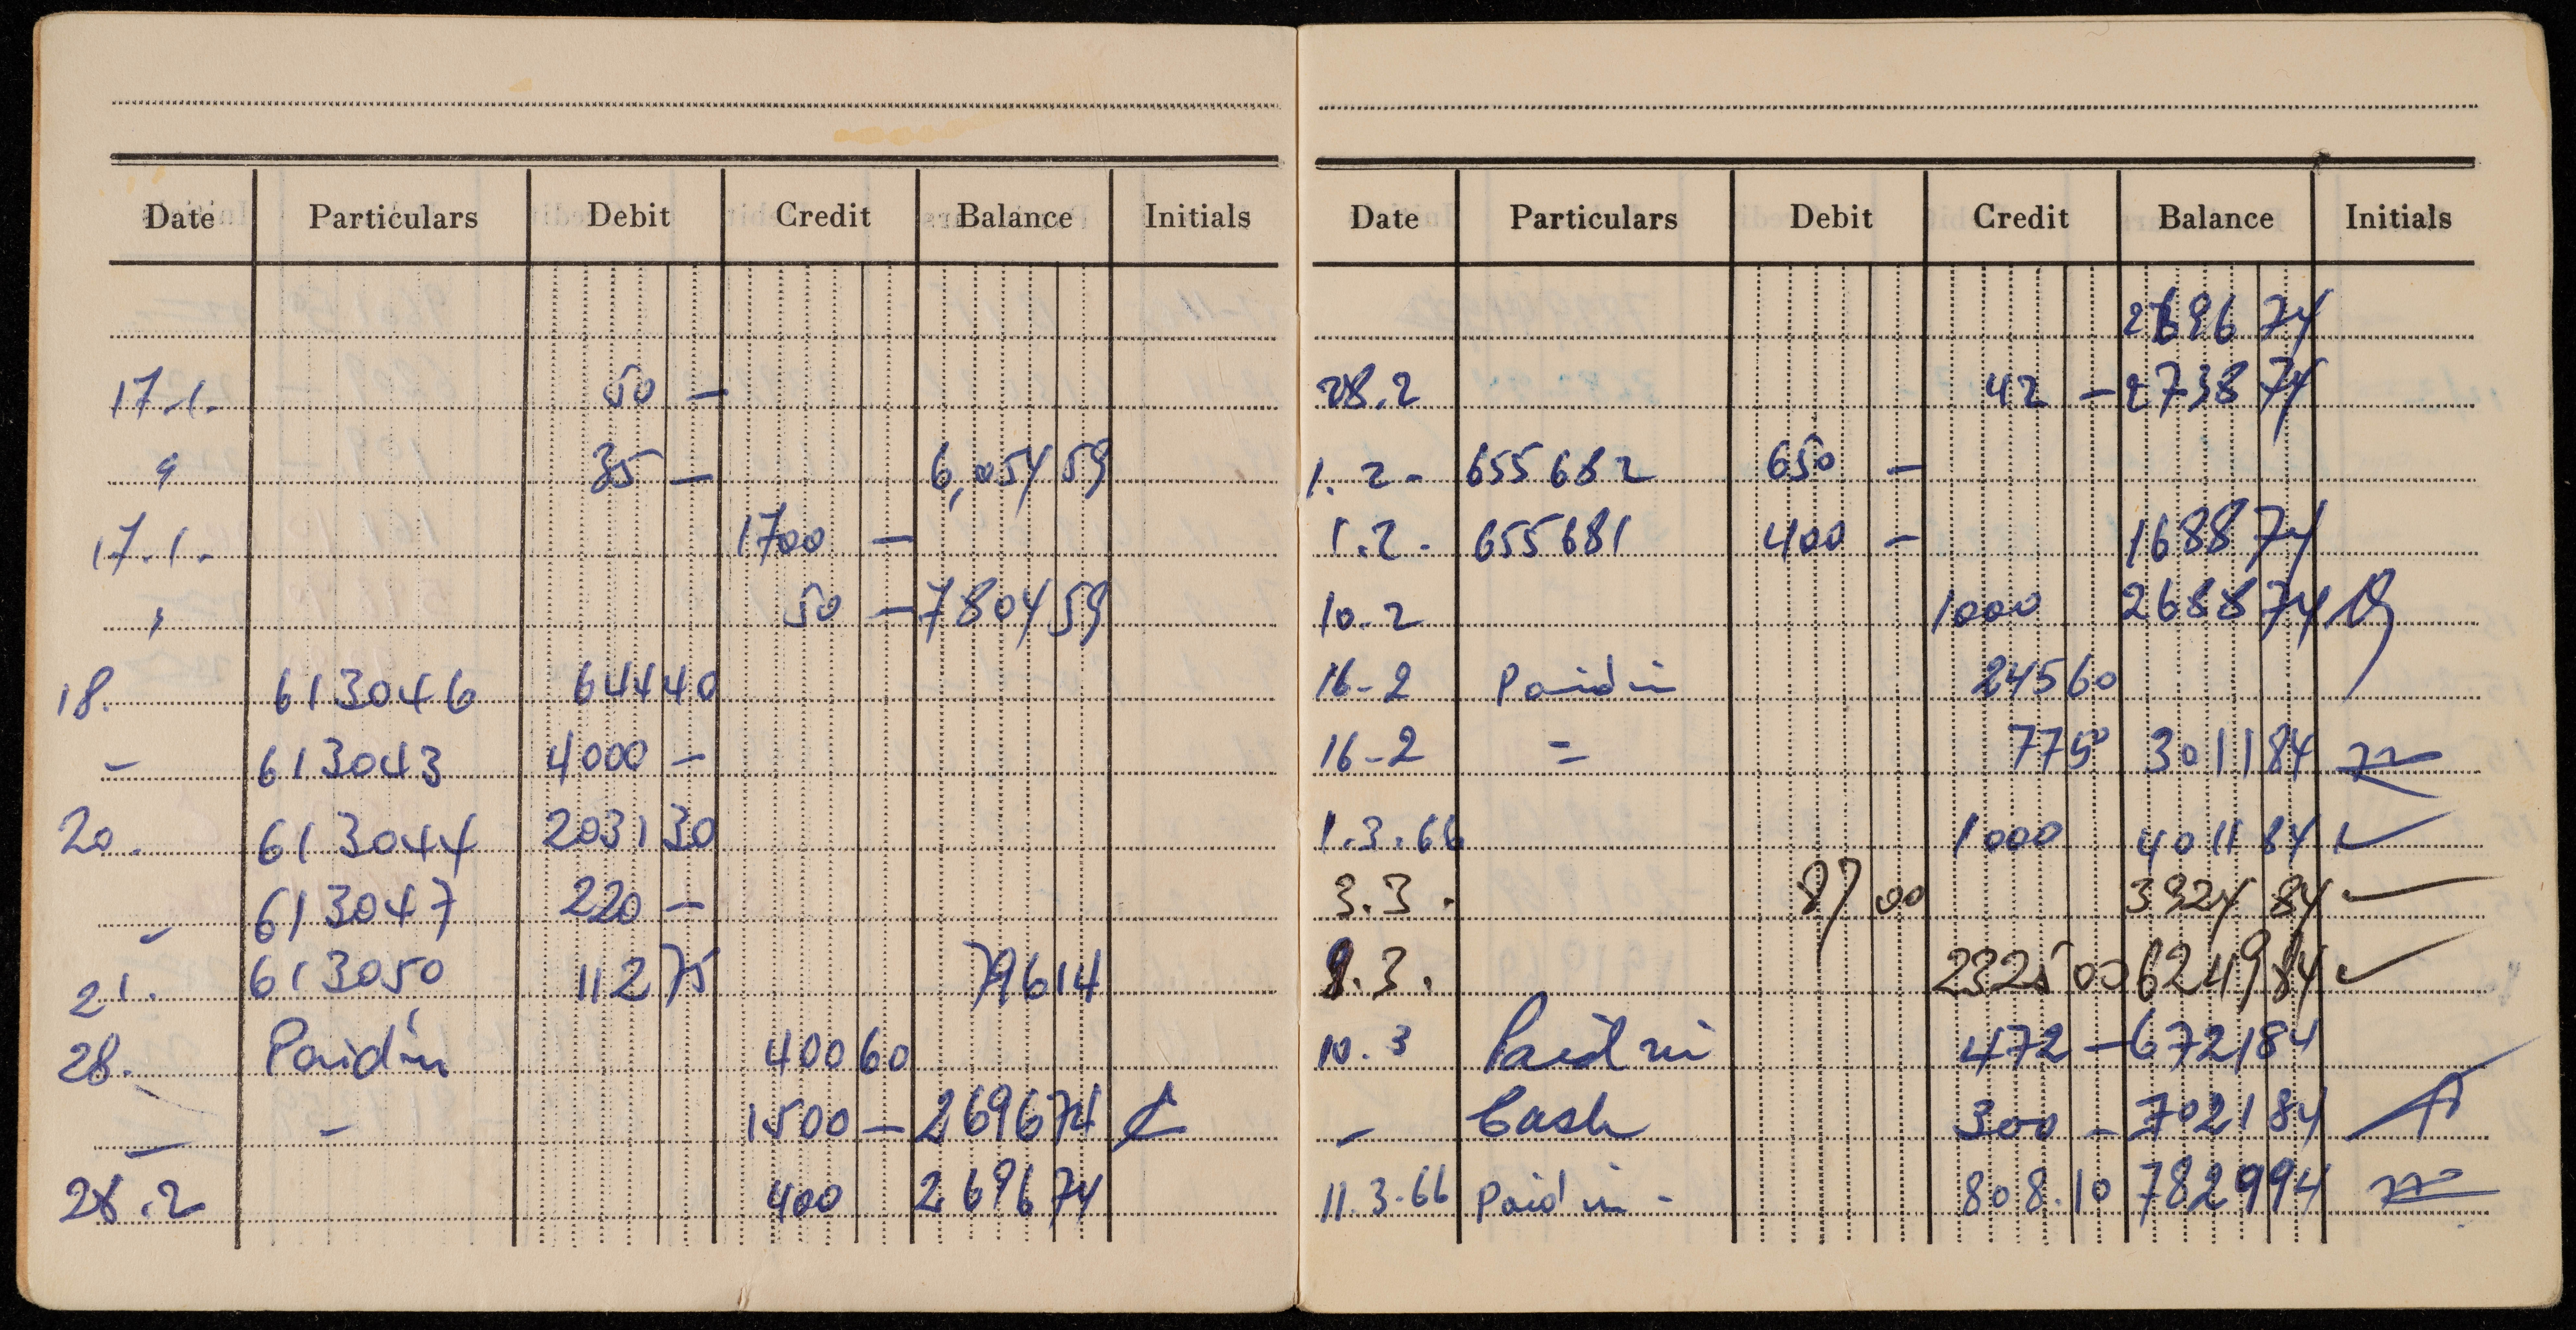 Date Particulars Debit Credit Balance Initials
17.1. 50 —
" 35 — 6,054 59
17.1. 1700 —
" 50 — 7804 59
18. 613046 644 40
– 613043 4000 —
20. 613044 2031 30
– 613047 220 —
21. 613050 112 75 796 14
28. Paid in 400 60
– – 1500 — 2696 74
28.2 400 2696 74
Date Particulars Debit Credit Balance Initials
2696 74
28.2 42 — 2738 74
1.2- 655682 650 —
1.2- 655681 400 — 1688 74
10-2 1000 2688 74
16-2 Paid in 245 60
16-2 = 77 50 3011 84
1.3.66 1000 4011 84
3.3. 87 00 3924 84
9.3. 2325 00 6249 84
10.3 Paid in 472 — 6721 84
– Cash 300 — 7021 84
11.3.66 Paid in - 808.10 7829 94